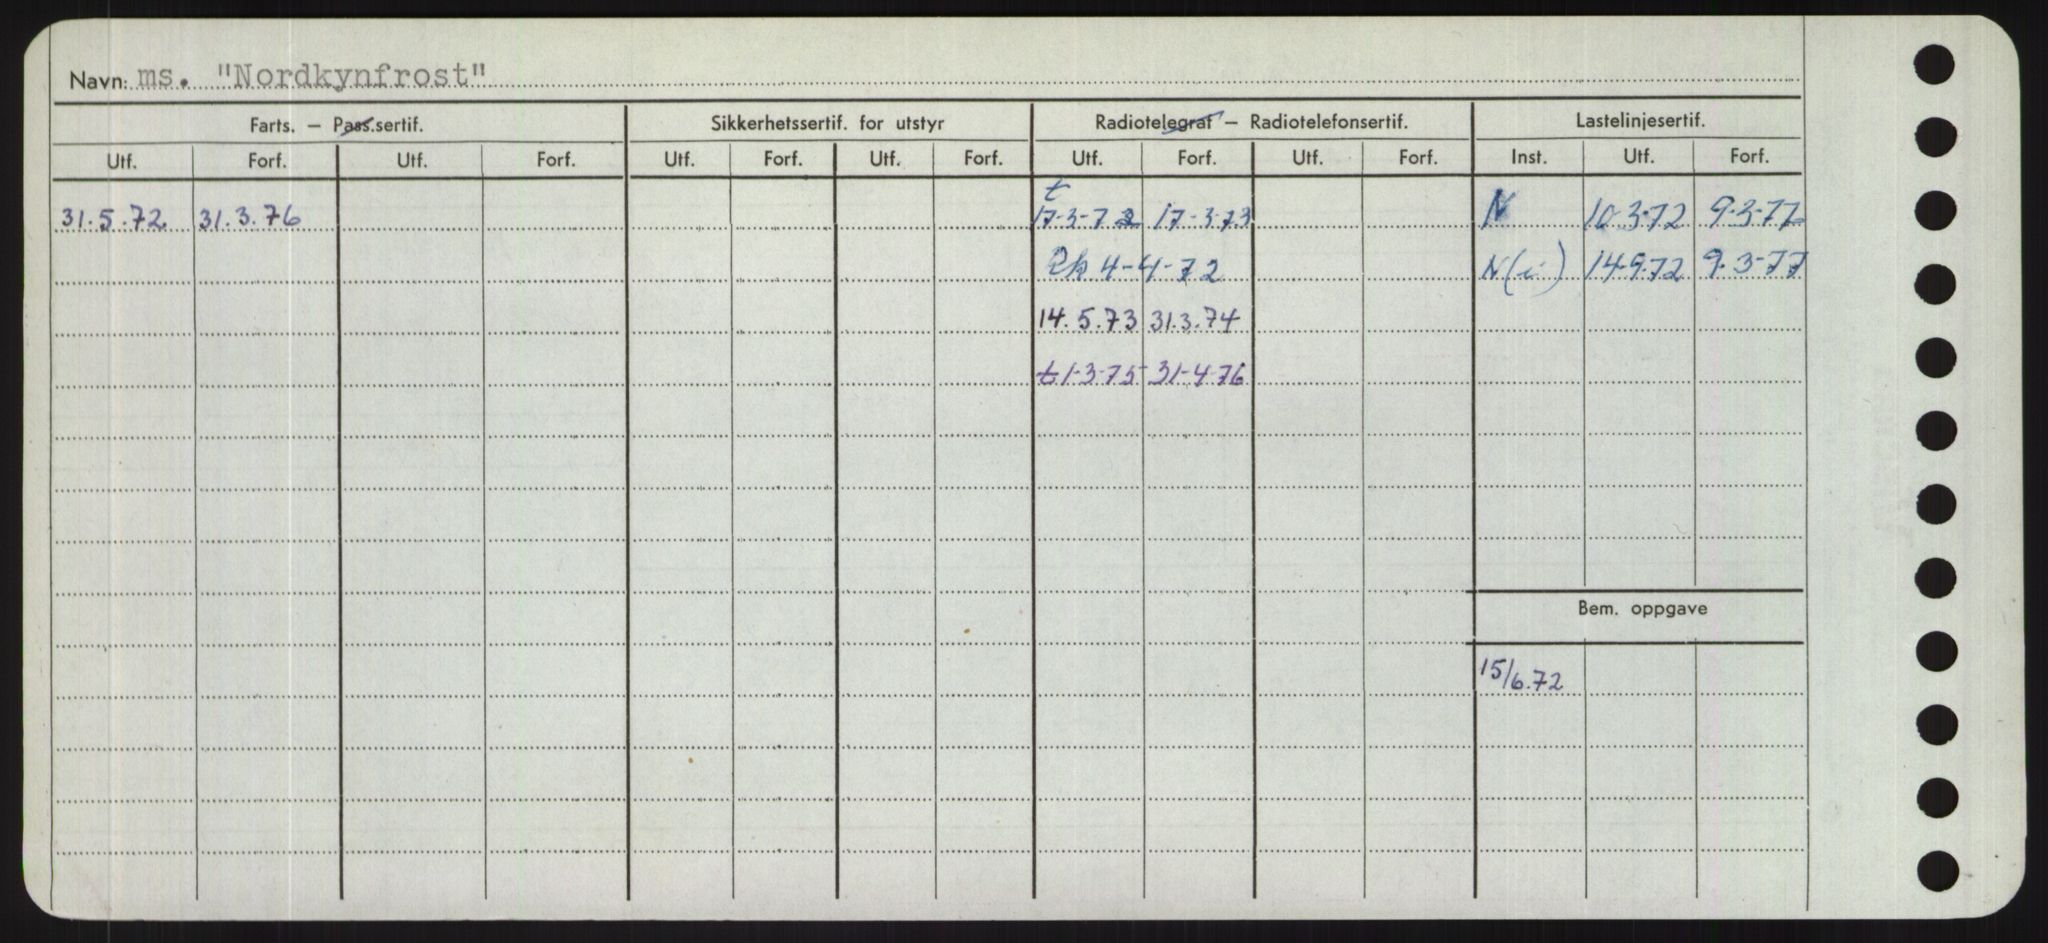 Navn: ms. "Nordkynfrost"
Farts. – Pass.sertif. Sikkerhetssertif. for utstyr Radiotelegraf – Radiotelefonsertif. Lastelinjesertif.
Utf. Forf. Utf. Forf. Utf. Forf. Utf. Forf. Utf. Forf. Utf. Forf. Inst. Utf. Forf.
t
31.5.72 31.3.76 17-3-72 17-3-73 N 10-3-72 9-3-77
Rk 4-4-72 N(i) 14-9-72 9-3-77
14.5.73 31.3.74
t 1-3-75 31-4-76
Bem. oppgave
15/6.72